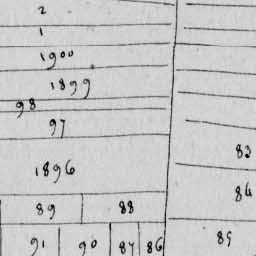 2
1
1900
1899
98
97
83
1896
84
89 88
85
91 90 87 86